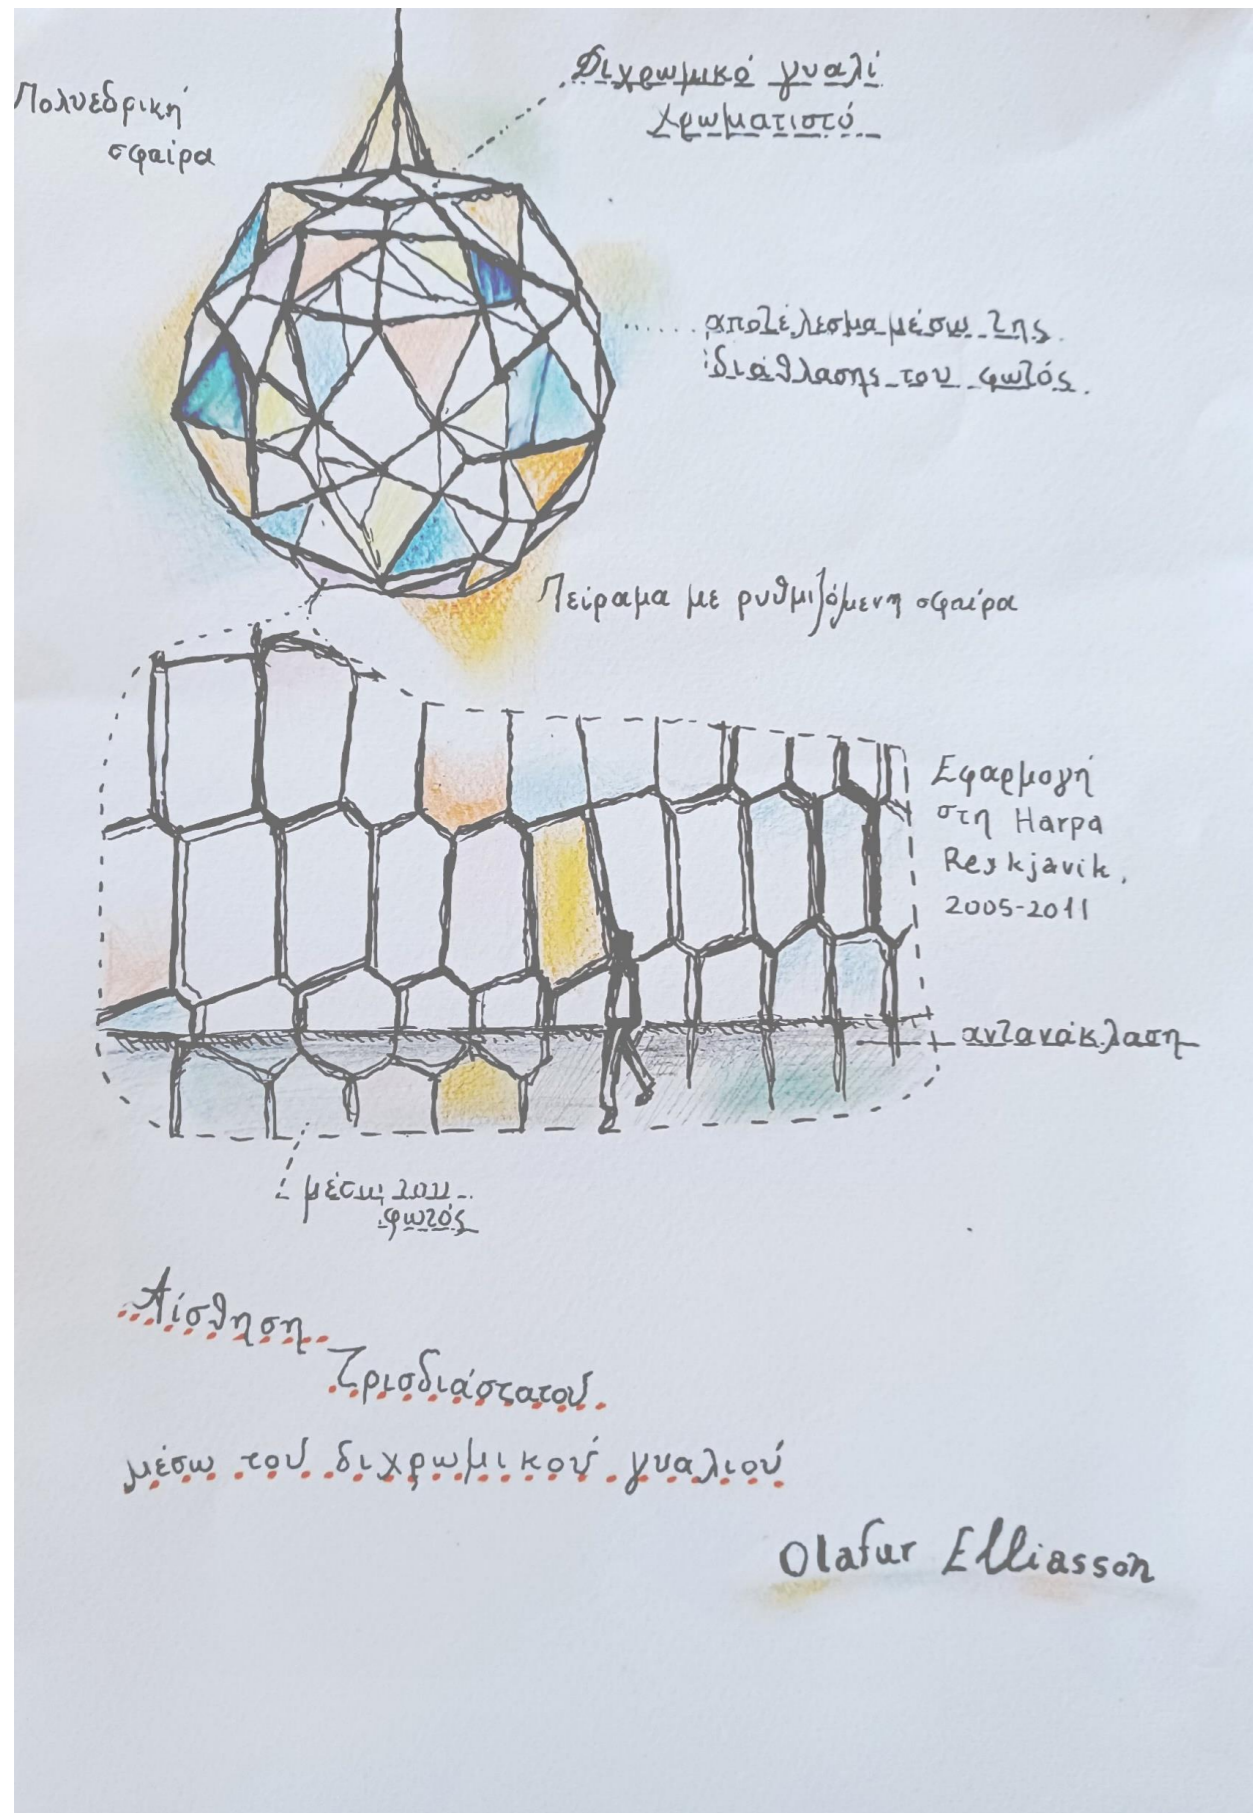 Πολυεδρική
σφαίρα
Διχρωμικό γυαλί
χρωματιστό
αποτέλεσμα μέσω της
διάθλασης του φωτός.
Πείραμα με ρυθμιζόμενη σφαίρα
Εφαρμογή
στη Harpa
Reykjavik,
2005-2011
αντανάκλαση
μέσω του
φωτός
Αίσθηση
Τρισδιάστατου
μέσω του διχρωμικού γυαλιού
Olafur Elliasson